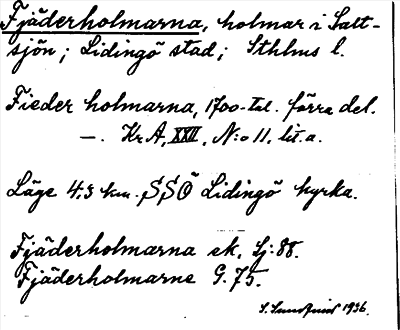 Fjäderholmarna, holmar i Salt-
sjön; Lidingö stad; Sthlms l.
Fieder holmarna, 1700-tal. förra del.
—. Kr A, XXII, N:o 11, lit. a.
Läge 4,3 km. SSÖ Lidingö kyrka.
Fjäderholmarna ek. Lj: 88.
Fjäderholmarne G. 75.
S. 1936.